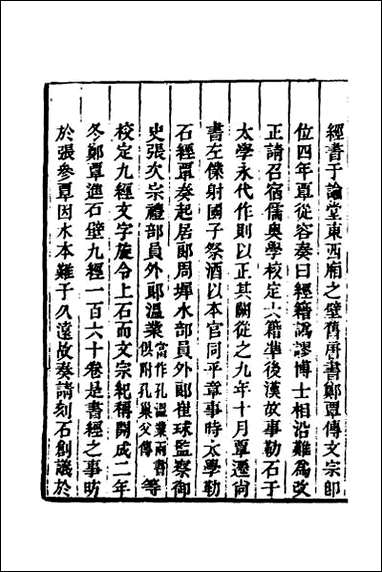 經書于論堂東西廂之壁舊唐書鄭覃傳文宗卽
位四年覃從容奏曰經籍譌謬博士相沿難爲改
正請召宿儒奥學校定六籍準後漢故事勒石于
太學永代作則以正其闕從之九年十月覃遷尚
書左僕射國子祭酒以本官同平章事時太學勒
石經覃奏起居郎周墀水部員外郎崔球監察御
史張次宗禮部員外郎溫業當作孔溫業兩書俱附孔巢父傳等
校定九經文字旋令上石而文宗紀稱開成二年
冬鄭覃進石壁九經一百六十卷是書經之事昉
於張參覃因木本難于久遠故奏請刻石創議於